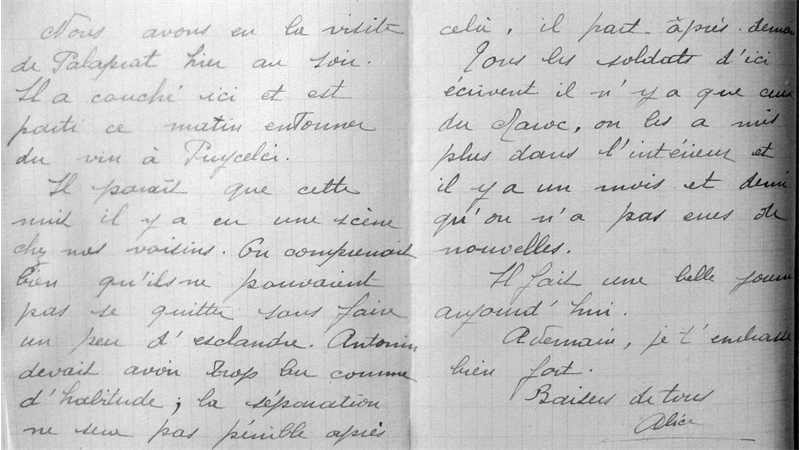 Nous avons eu la visite
de Palaprat hier au soir.
Il a couché ici et est
parti ce matin entonner
du vin à Puycelci.
Il paraît que cette
nuit il y a eu une scène
chez nos voisins. On comprenait
bien qu'ils ne pouvaient
pas se quitter sans faire
un peu d'esclandre. Antonin
devait avoir trop bu comme
d'habitude ; la séparation
ne sera pas pénible après
celà, il part après-demain
Tous les soldats d'ici
écrivent il n'y a que ceux
du Maroc, on les a mis
plus dans l'intérieur et
il y a un mois et demi
qu'on n'a pas eues de
nouvelles.
Il fait une belle journ
aujourd'hui.
A demain, je t'embrasse
bien fort.
Baisers de tous
Alice